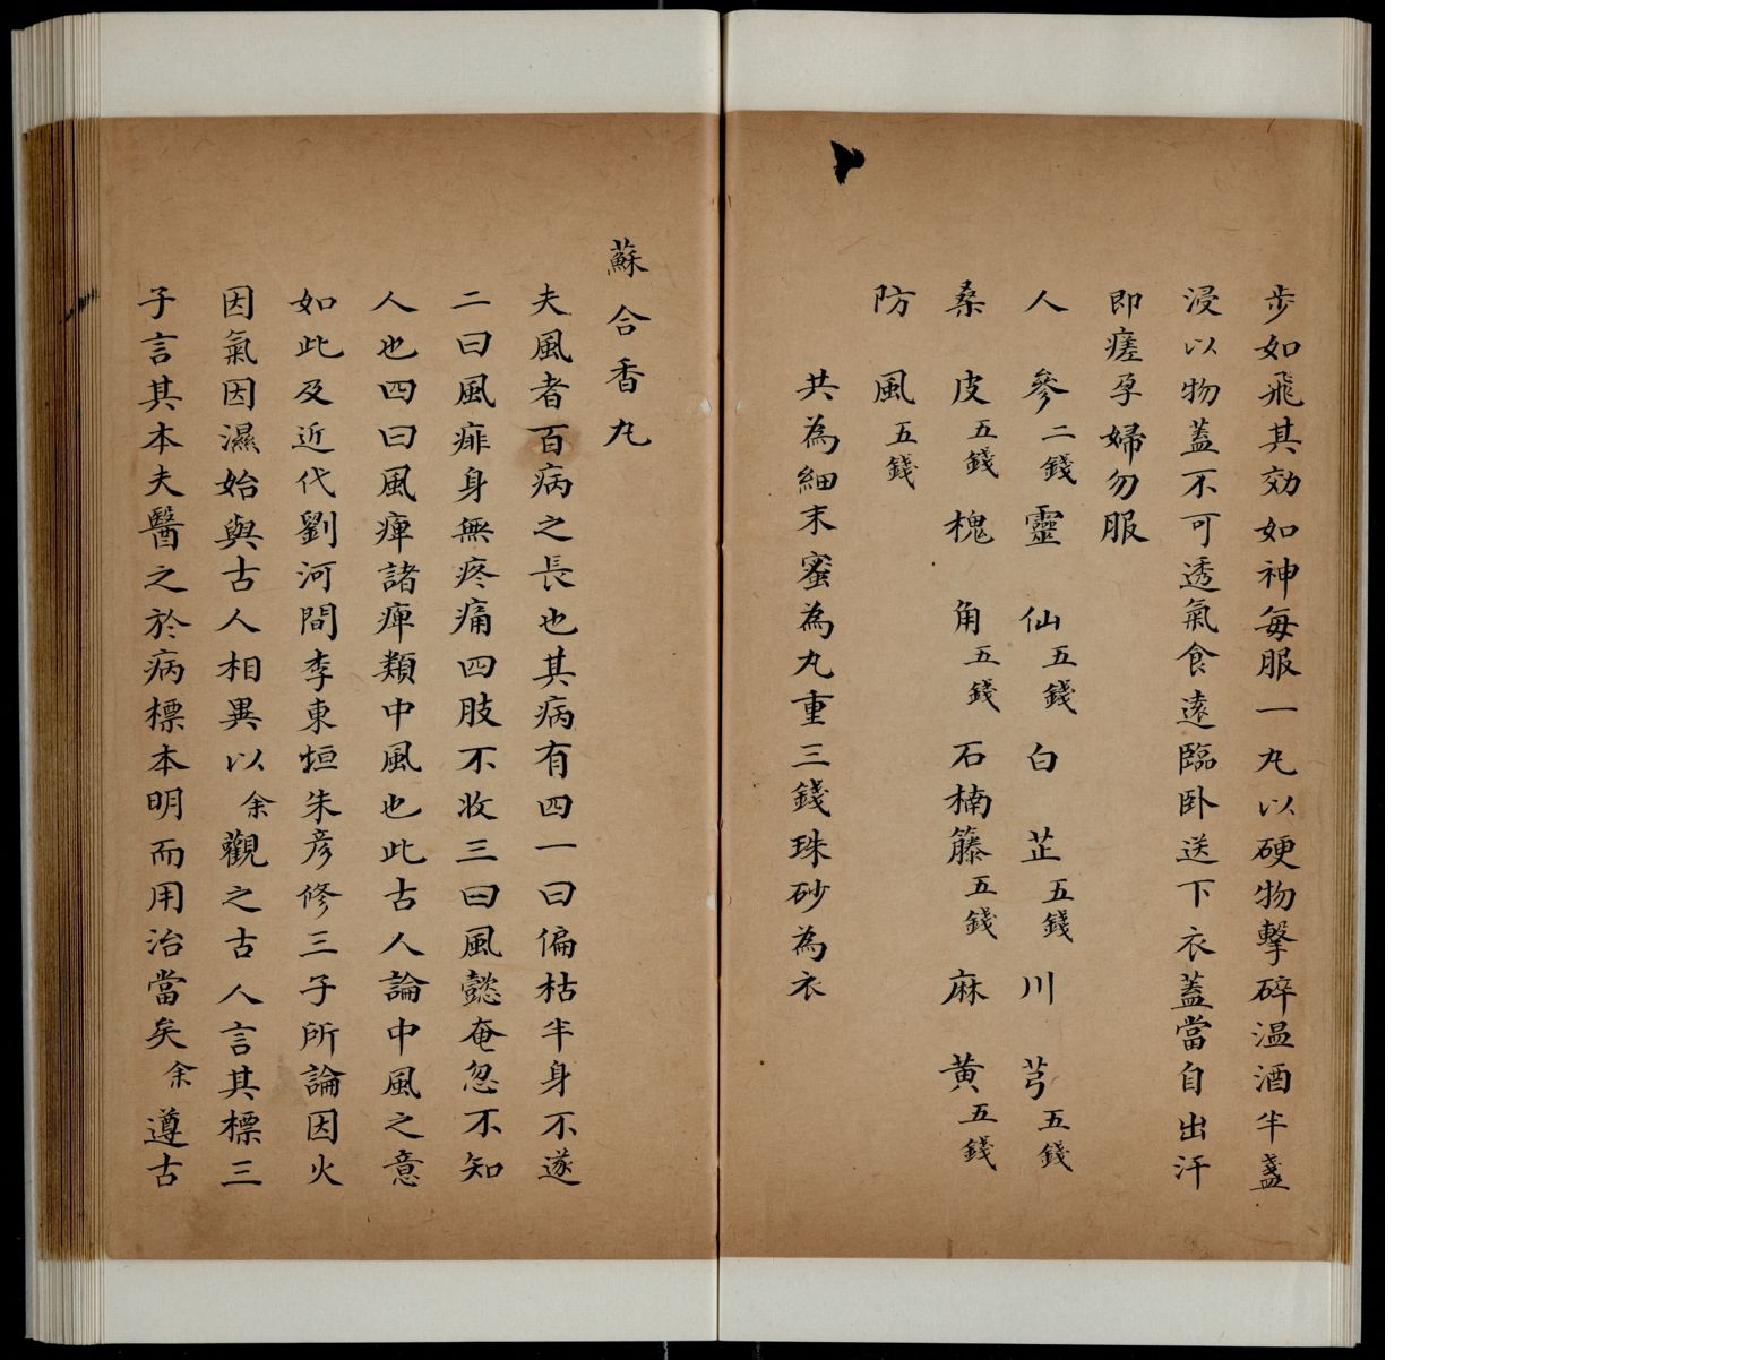 步如飛其効如神每服一丸以硬物擊碎温酒半盞
浸以物蓋不可透氣食遠臨卧送下衣蓋當自出汗
即瘥孕婦勿服
人參二錢靈仙五錢白芷五錢川芎五錢
桑皮五錢槐角五錢石楠籐五錢麻黄五錢
防風五錢
共為細末蜜為丸重三錢珠砂為衣
蘇合香丸
夫風者百病之長也其病有四一曰偏枯半身不遂
二曰風痱身無疼痛四肢不收三曰風懿奄忽不知
人也四曰風痺諸痺類中風也此古人論中風之意
如此及近代劉河間李東垣朱彦修三子所論因火
因氣因濕始與古人相異以余觀之古人言其標三
子言其本夫醫之於病標本明而用治當矣余遵古